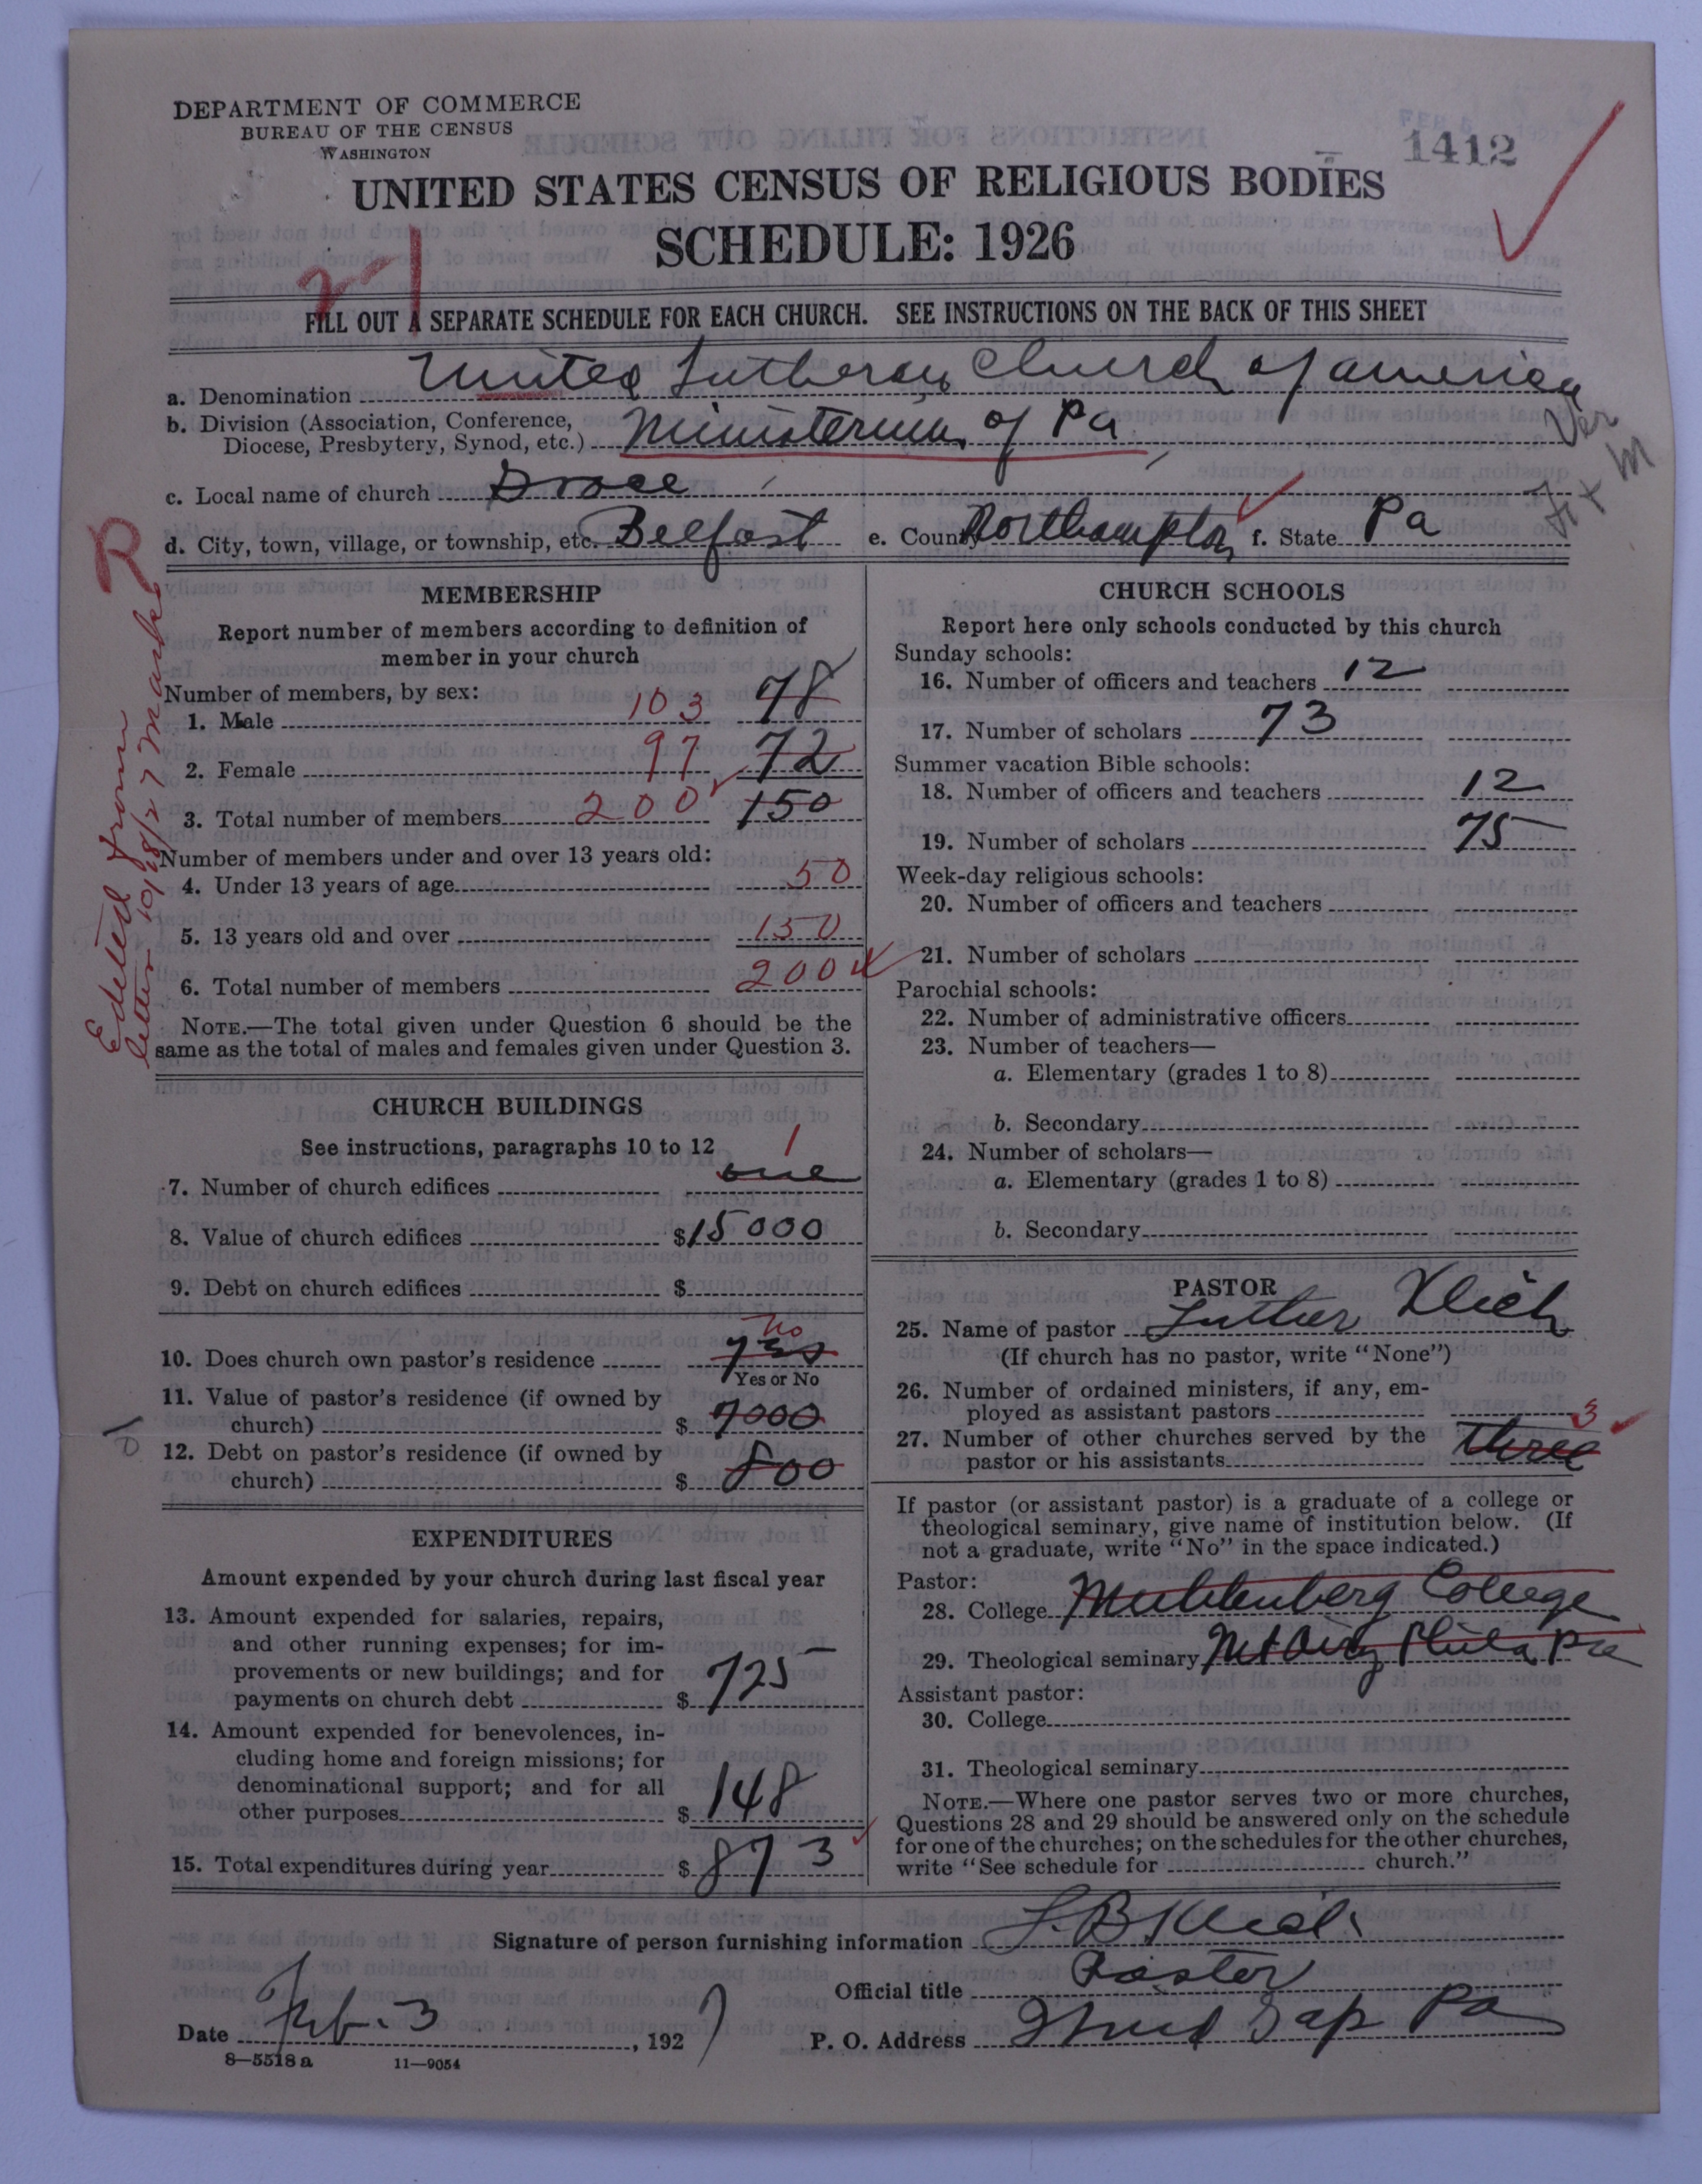 DEPARTMENT OF COMMERCE
BUREAU OF THE CENSUS
WASHINGTON
1412
UNITED STATES CENSUS OF RELIGIOUS BODIES
SCHEDULE: 1926
FILL OUT A SEPARATE SCHEDULE FOR EACH CHURCH. SEE INSTRUCTIONS ON THE BACK OF THIS SHEET
a. Denomination United Lutheran Church of america
b. Division (Association, Conference,
Diocese, Presbytery, Synod, etc.) Ministerium of Pa
c. Local name of church Grace
d. City, town, village, or township, etc. Belfast e. County Northampton f. State Pa
R
Edited from
letter 10/28/27 Marked
MEMBERSHIP
Report number of members according to definition of
member in your church
Number of members, by sex:
1. Male 103 78
2. Female 97 72
3. Total number of members 200 150
Number of members under and over 13 years old:
4. Under 13 years of age 50
5. 13 years old and over 150
6. Total number of members 200
NOTE.—The total given under Question 6 should be the
same as the total of males and females given under Question 3.
CHURCH BUILDINGS
See instructions, paragraphs 10 to 12
1
7. Number of church edifices one
8. Value of church edifices $15000
9. Debt on church edifices $
no
10. Does church own pastor's residence yes
Yes or No
11. Value of pastor's residence (if owned by
church) $ 7000
12. Debt on pastor's residence (if owned by
church) $ 800
EXPENDITURES
Amount expended by your church during last fiscal year
13. Amount expended for salaries, repairs,
and other running expenses; for im-
provements or new buildings; and for
payments on church debt $ 725
14. Amount expended for benevolences, in-
cluding home and foreign missions; for
denominational support; and for all
other purposes $ 148
15. Total expenditures during year $ 873
CHURCH SCHOOLS
Report here only schools conducted by this church
Sunday schools:
16. Number of officers and teachers 12
17. Number of scholars 73
Summer vacation Bible schools:
18. Number of officers and teachers 12
19. Number of scholars 75
Week-day religious schools:
20. Number of officers and teachers
21. Number of scholars
Parochial schools:
22. Number of administrative officers
23. Number of teachers—
a. Elementary (grades 1 to 8)
b. Secondary
24. Number of scholars—
a. Elementary (grades 1 to 8)
b. Secondary
PASTOR
25. Name of pastor Luther Klick
(If church has no pastor, write "None")
26. Number of ordained ministers, if any, em-
ployed as assistant pastors
3
27. Number of other churches served by the
pastor or his assistants three
If pastor (or assistant pastor) is a graduate of a college or
theological seminary, give name of institution below. (If
not a graduate, write "No" in the space indicated.)
Pastor:
28. College Muhlenberg College
29. Theological seminary Mt Airy Phila Pa
Assistant pastor:
30. College
31. Theological seminary
NOTE.—Where one pastor serves two or more churches,
Questions 28 and 29 should be answered only on the schedule
for one of the churches; on the schedules for the other churches,
write "See schedule for church."
Signature of person furnishing information L. B Klick
Official title Pastor
Date Feb. 3, 1927 P. O. Address Wind Gap Pa
8—5518 a 11—9054